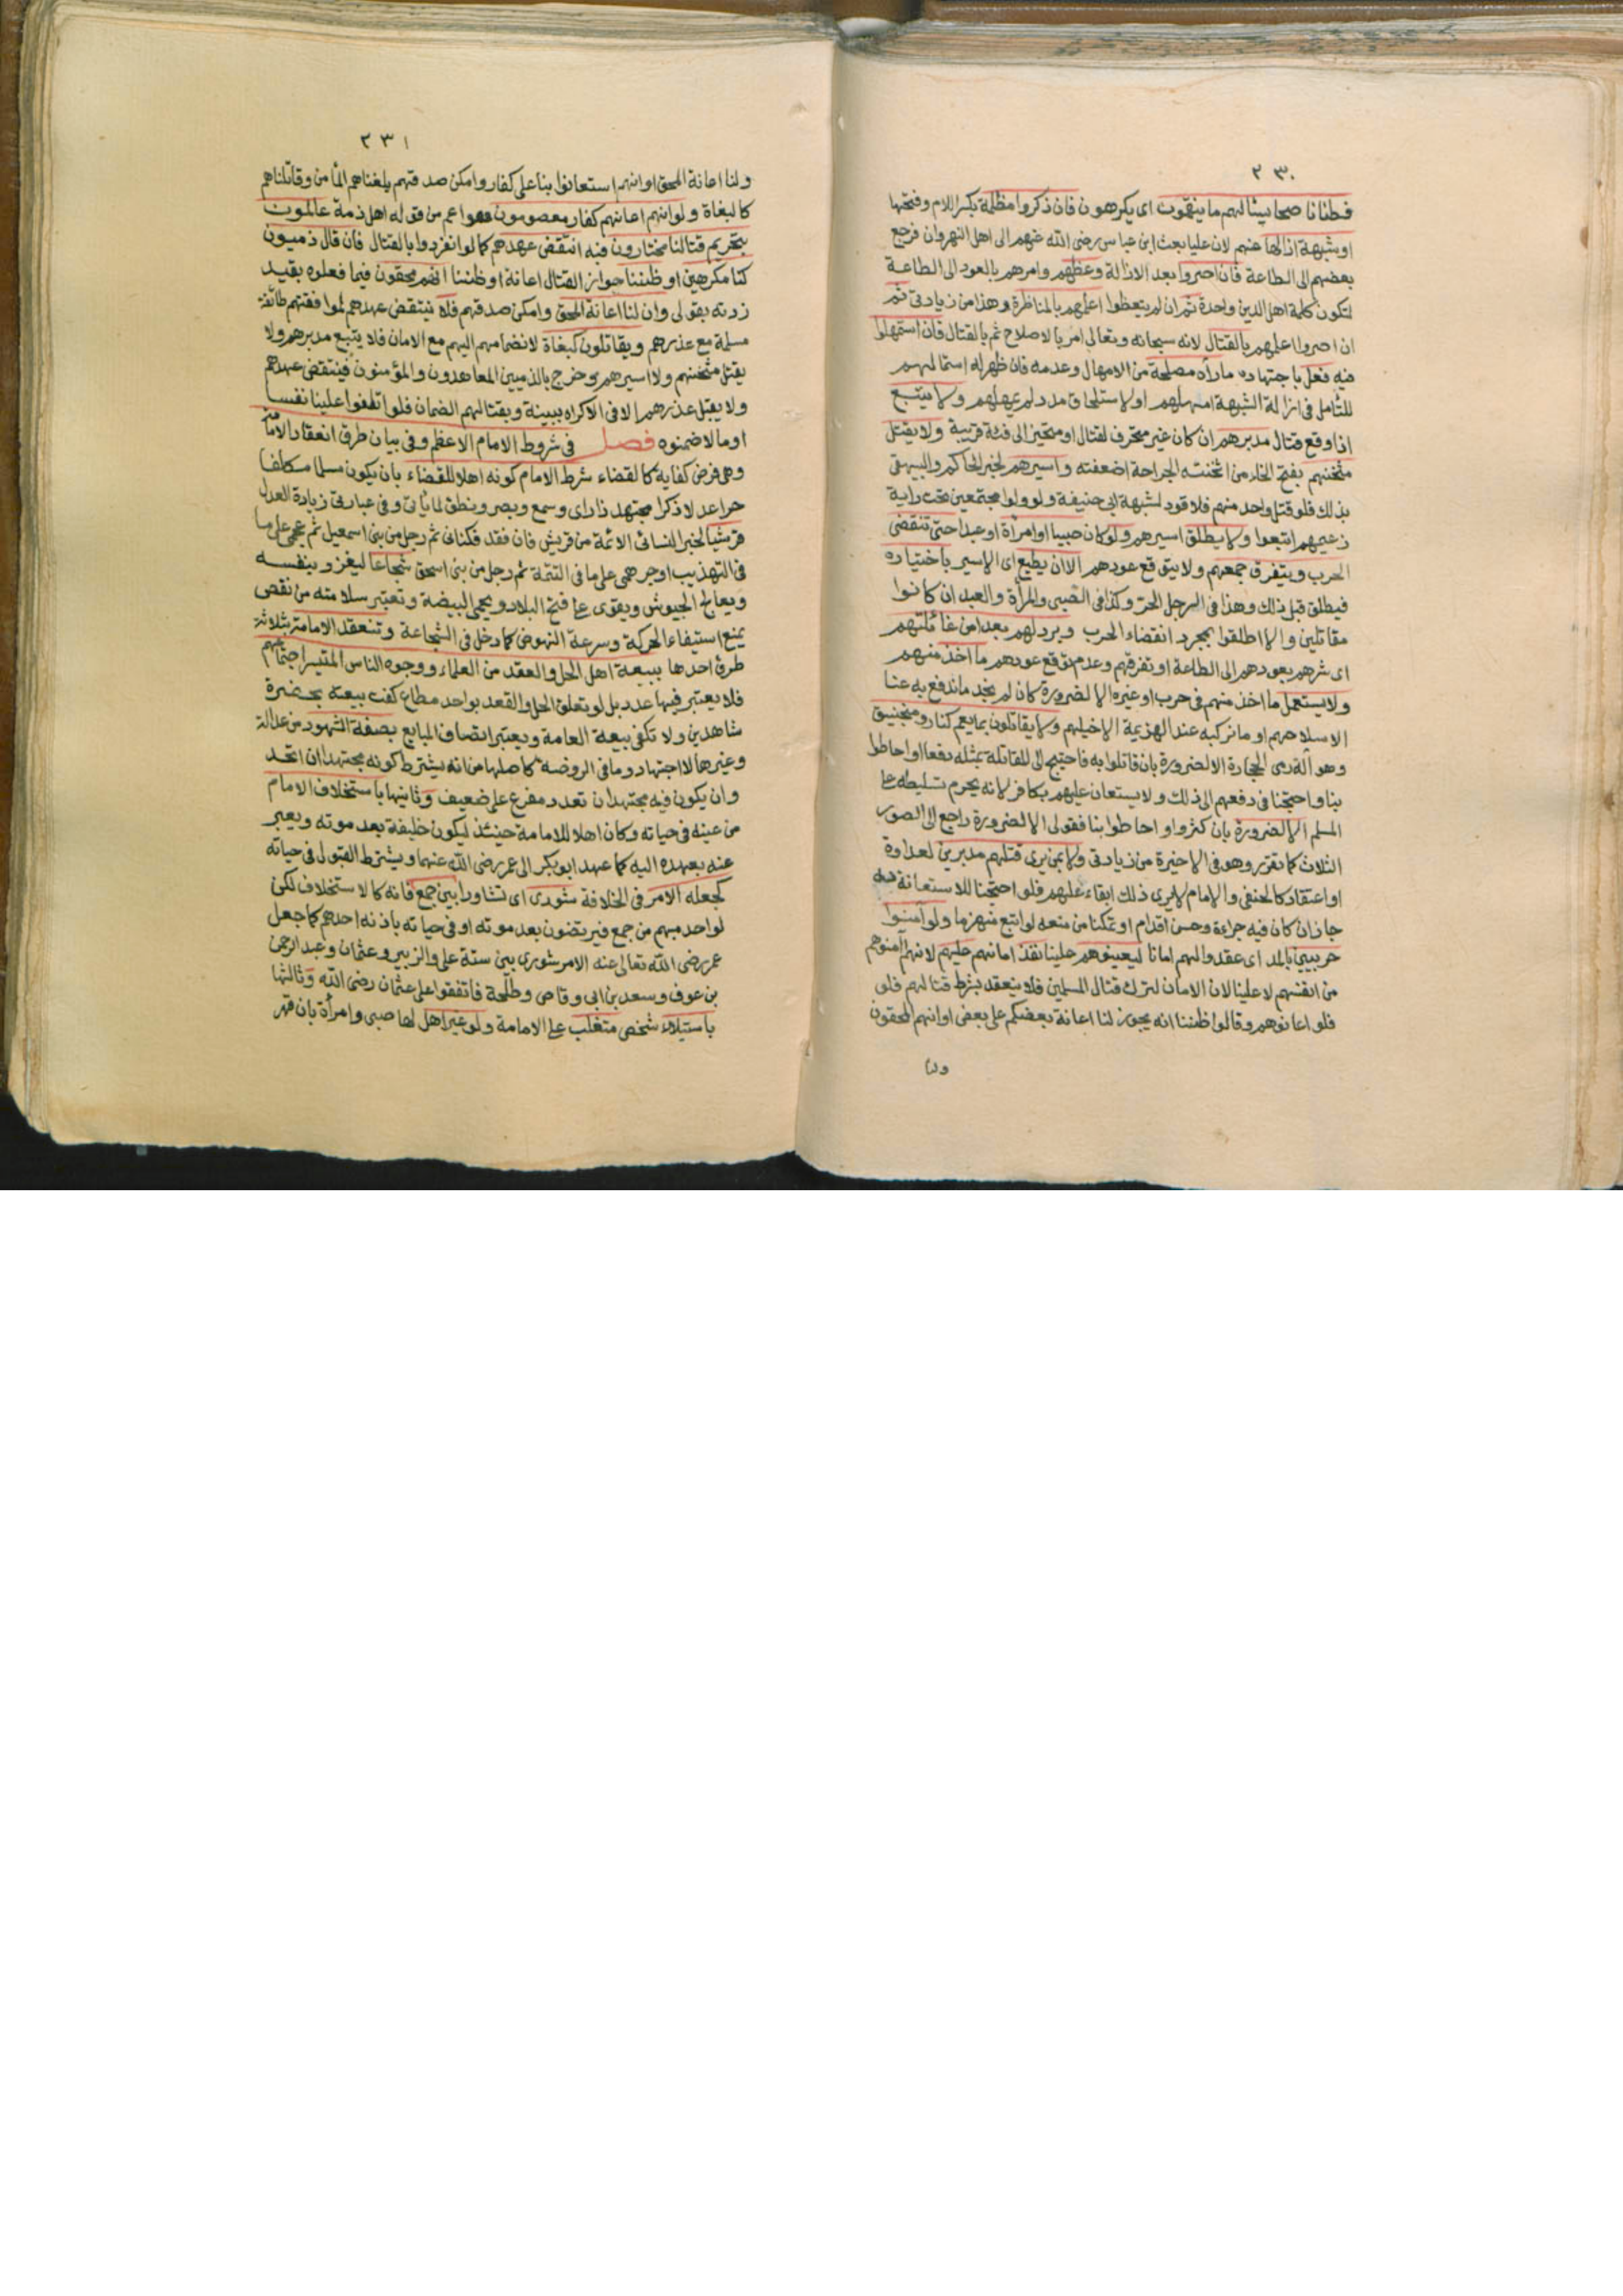 ٢٣٠
فطنا ناصحا يسألهم ما ينقمون اى يكرهون فان ذكروا مظلمة بكسر اللام وفتحها
او شبهة ازالها عنهم لان عليا بعث ابن عباس رضى الله عنهم الى اهل النهروان فرجع
بعضهم الى الطاعة فان اصروا بعد الازالة وعظهم وامرهم بالعود الى الطاعة
لتكون كلمة اهل الدين واحدة ثم ان لم يتعظوا اعلمهم بالمناظرة وهذا من زيادتى ثم
ان اصروا اعلمهم بالقتال لانه سبحانه وتعالى امر بالاصلاح ثم بالقتال فان استمهلوا
فيه فعل باجتهاده ما رآه مصلحة من الامهال وعدمه فان ظهر له استمهالهم
للتأمل فى ازالة الشبهة امهلهم او لاستلحاق مدد لم يمهلهم ولا يتبع
اذا وقع قتال مدبرهم ان كان غير متحرف لقتال او متحيز الى فئة قريبة ولا يقتل
مثخنهم بفتح الخاء من اثخنته الجراحة اضعفته واسيرهم لخبر الحاكم والبيهقى
بذلك فلو قتل واحد منهم فلا قود لشبهة ابى حنيفة ولو ولوا مجتمعين تحت راية
زعيمهم اتبعوا ولا يطلق اسيرهم ولو كان صبيا او امرأة او عبدا حتى تنقضى
الحرب ويتفرق جمعهم ولا يتوقع عودهم الا ان يطيع اى الاسير باختياره
فيطلق قبل ذلك وهذا فى الرجل الحر وكذا فى الصبى والمرأة والعبد ان كانوا
مقاتلين والا اطلقوا بمجرد انقضاء الحرب ويرد لهم بعد امن غائلتهم
اى شرهم بعودهم الى الطاعة او تفرقهم وعدم توقع عودهم ما اخذ منهم
ولا يستعمل ما اخذ منهم فى حرب او غيره الا لضرورة كان لم نجد ما ندفع به عنا
الا سلاحهم او ما نركبه عند الهزيمة الا خيلهم ولا يقاتلون بما يعم كنار ومنجنيق
وهو آلة رمى الحجارة الا لضرورة بان قاتلوا به فاحتيج الى المقاتلة بمثله دفعا او احاطوا
بنا واحتجنا فى دفعهم الى ذلك ولا يستعان عليهم بكافر لانه يحرم تسليطه على
المسلم الا لضرورة بان كثروا او احاطوا بنا فقولى الا لضرورة راجع الى الصور
الثلاث كما تقرر وهو فى الاخيرة من زيادتى ولا بمن يرى قتلهم مدبرين لعداوة
او اعتقاد كالحنفى والامام لا يرى ذلك ابقاء عليهم فلو احتجنا للاستعانة به
جاز ان كان فيه جراءة وحسن اقدام او تمكنا من منعه لو اتبع منهزما ولو آمنوا
حربيين بالمد اى عقدوا لهم امانا ليعينوهم علينا نفذ امانهم عليهم لانهم آمنوهم
من انفسهم لا علينا لان الامان لترك قتال المسلمين فلا ينعقد بشرط قتالهم فلو
فلو اعانوهم وقالوا ظننا انه يجوز لنا اعانة بعضكم على بعض او انهم المحقون
ولنا
٢٣١
ولنا اعانة المحق او انهم استعانوا بنا على كفار وامكن صدقهم بلغناهم المأمن وقاتلناهم
كالبغاة ولو اتهم اعانهم كفار معصومون هو اعم من قوله اهل ذمة عالمون
بتحريم قتالنا مختارون فيه انتقض عهدهم كما لو انفردوا بالقتال فان قال ذميون
كنا مكرهين او ظننا جواز القتال اعانة او ظننا انهم محقون فيما فعلوه بقيد
زدته بقولى وان لنا اعانة المحق وامكن صدقهم فلا ينتقض عهدهم لموافقتهم طائفة
مسلمة مع عذرهم ويقاتلون كبغاة لانضمامهم اليهم مع الامان فلا يتبع مدبرهم ولا
يقتل مثخنهم ولا اسيرهم وخرج بالذميين المعاهدون والمؤمنون فينتقض عهدهم
ولا يقبل عذرهم الا فى الاكراه ببينة وبقتالهم الضمان فلو اتلفوا علينا نفسا
او مالا ضمنوه فصل فى شروط الامام الاعظم وفى بيان طرق انعقاد الامامة
وهى فرض كفاية كالقضاء شرط الامام كونه اهلا للقضاء بان يكون مسلما مكلفا
حرا عدلا ذكرا مجتهدا ذا راى وسمع وبصر ونطق لما يأتى وفى عبارتى زيادة العدل
قرشيا لخبر النسائى الائمة من قريش فان فقد فكنانى ثم رجل من بنى اسمعيل ثم عجمى على ما
فى التهذيب او جرهمى على ما فى التتمة ثم رجل من بنى اسحق شجاعا ليغزو بنفسه
ويعالج الجيوش ويقوى على فتح البلاد ويحمى البيضة وتعتبر سلامته من نقص
يمنع استيفاء الحركة وسرعة النهوض كما دخل فى الشجاعة وتنعقد الامامة بثلاثة
طرق احدها ببيعة اهل الحل والعقد من العلماء ووجوه الناس المتيسر اجتماعهم
فلا يعتبر فيها عدد بل لو تعلق الحل والقعد بواحد مطاع كفت بيعته بحضرة
شاهدين ولا تكفى بيعة العامة ويعتبر اتصاف المبايع بصفة الشهود من عدالة
وغيرها لا اجتهاد وما فى الروضة كاصلها من انه يشترط كونه مجتهدا ان اتحد
وان يكون فيه مجتهد ان تعدد مفرع على ضعيف وثانيها باستخلاف الامام
من عينه فى حياته وكان اهلا للامامة حينئذ ليكون خليفة بعد موته ويعبر
عنه بعهده اليه كما عهد ابو بكر الى عمر رضى الله عنهما ويشترط القبول فى حياته
كجعله الامر فى الخلافة شورى اى تشاورا بين جمع فانه كالاستخلاف لكن
لواحد مبهم من جمع فيرتضون بعد موته او فى حياته باذنه احدهم كما جعل
عمر رضى الله تعالى عنه الامر شورى بين ستة على والزبير وعثمان وعبد الرحمن
بن عوف وسعد بن ابى وقاص وطلحة فاتفقوا على عثمان رضى الله وثالثها
باستيلاء شخص متغلب على الامامة ولو غير اهل لها صبى وامرأة بان قهر